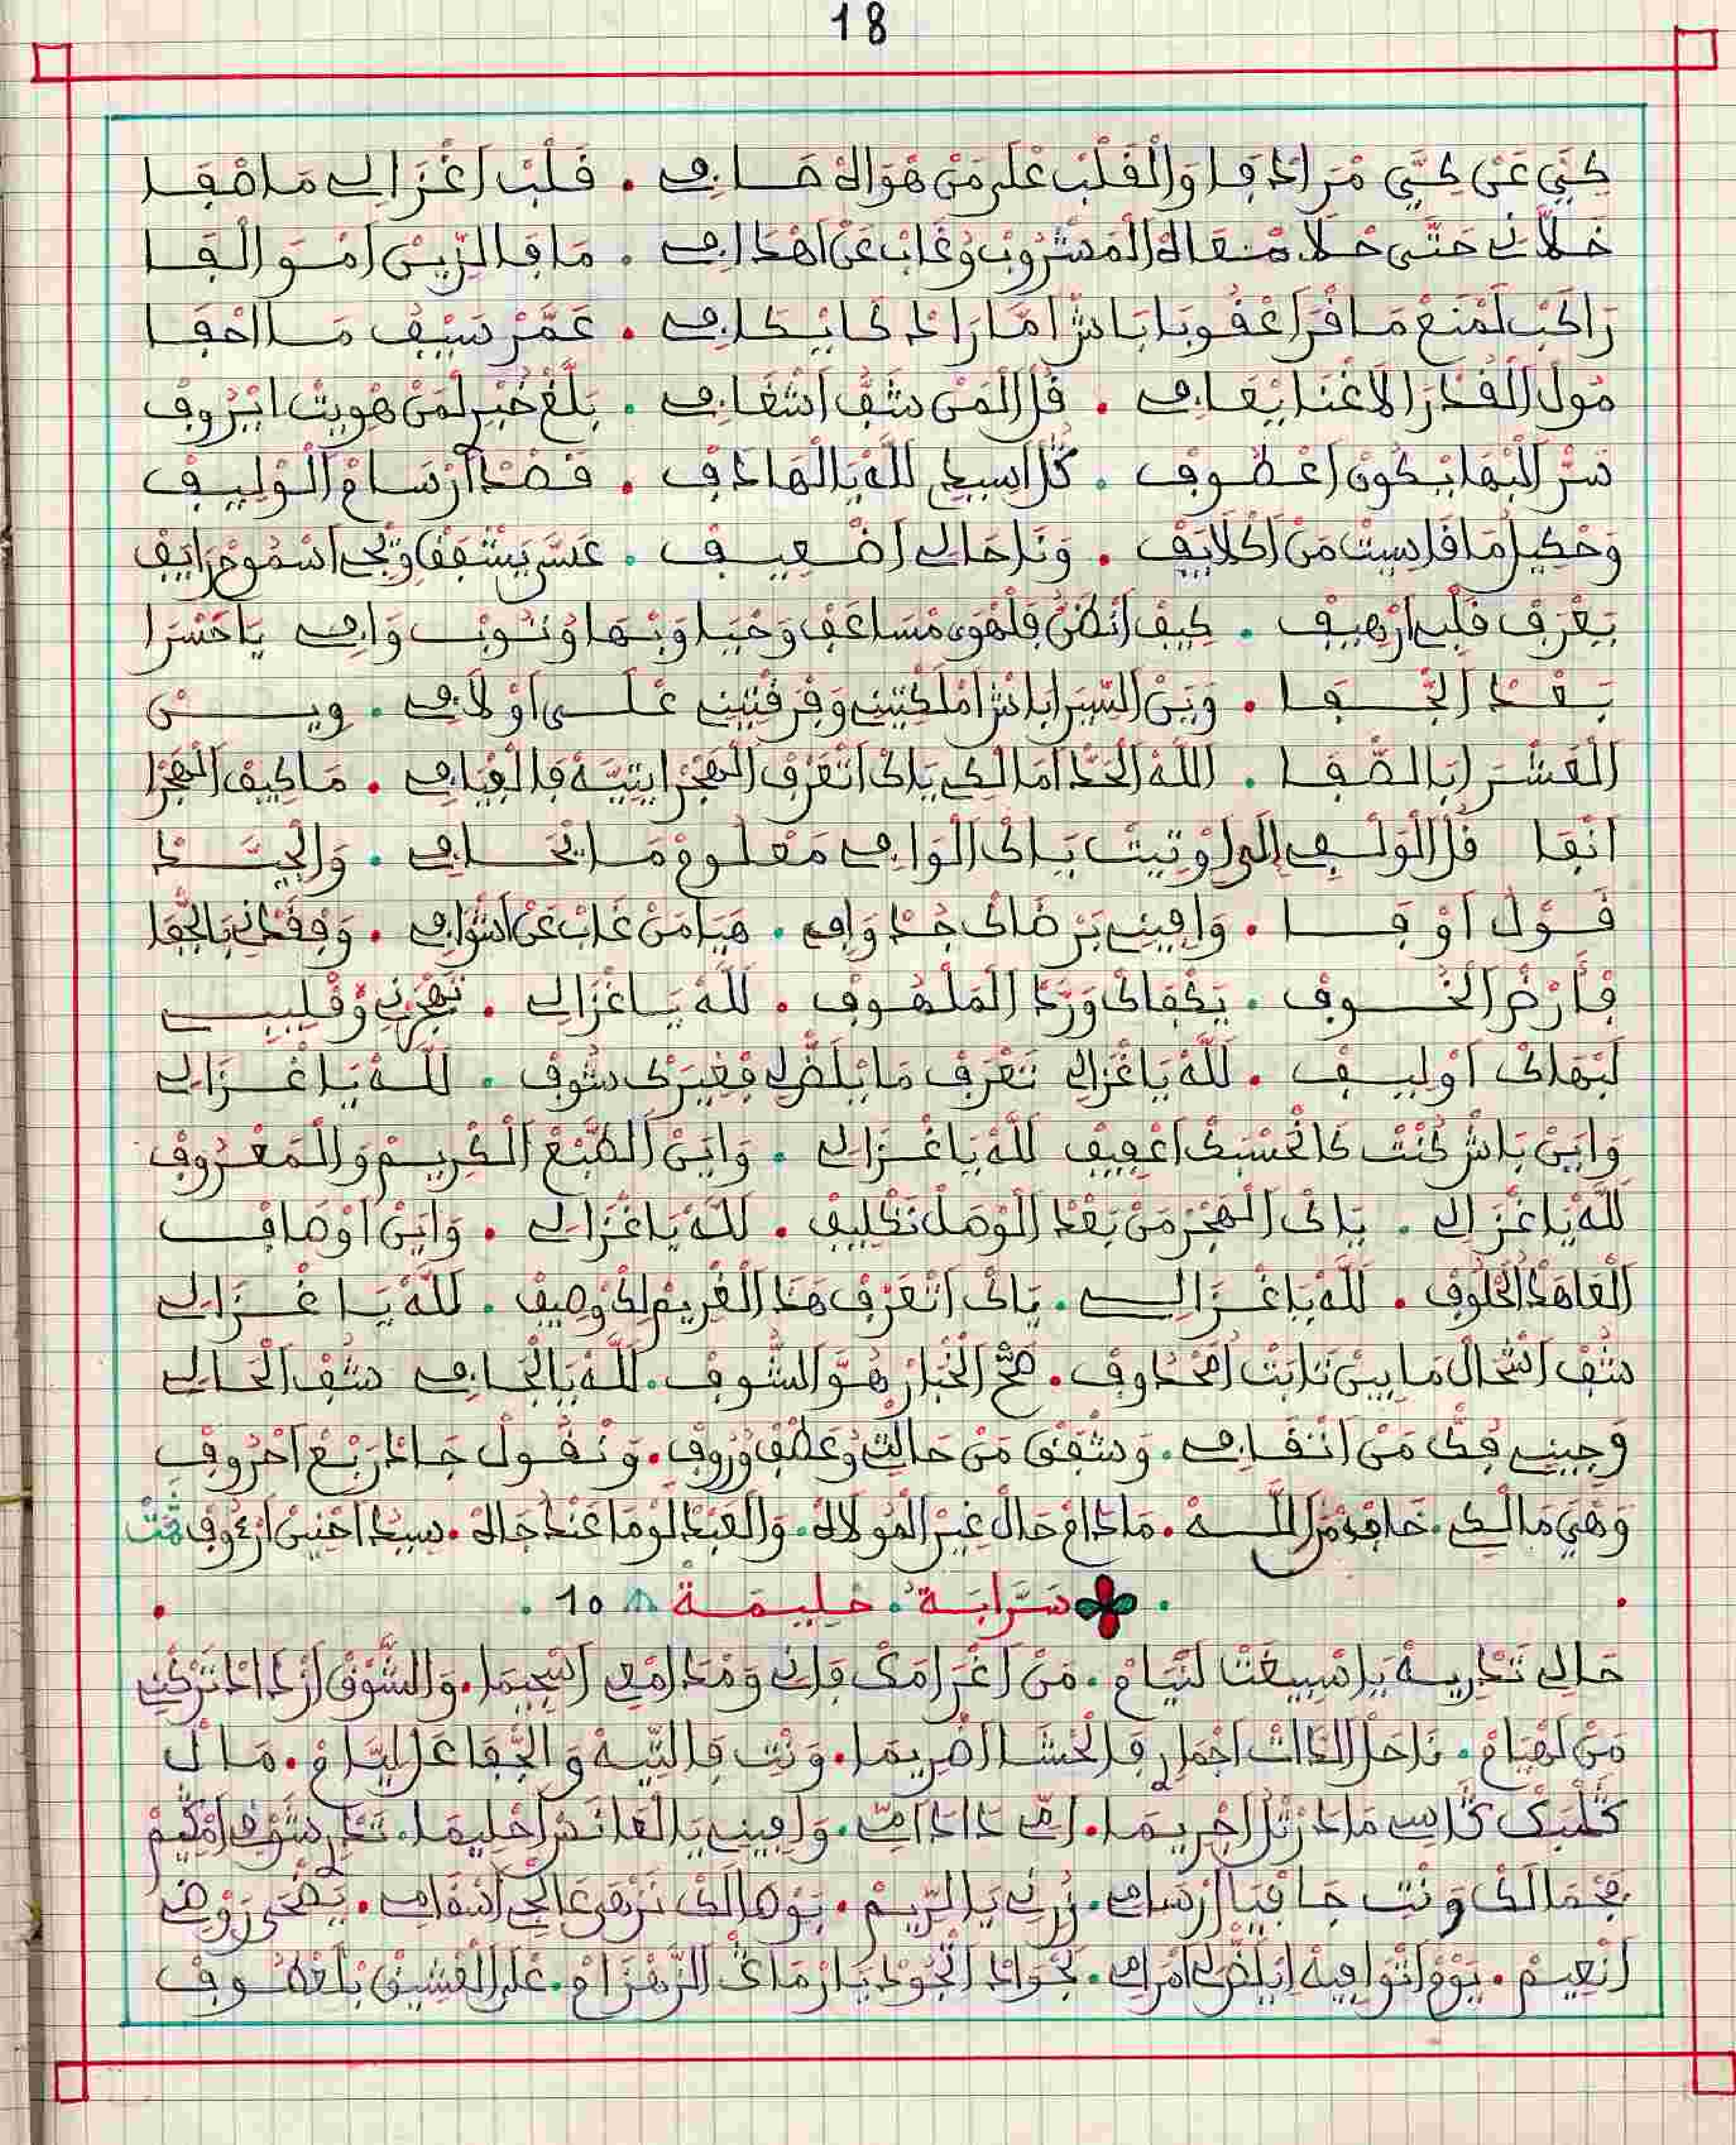 18
كِيِّ عَنْ كِيِّ مَن اذفا وَالْقَلْبْ عْلَى مَنْ هْوَاهْ صَافِي . قَلْبْ اغْزَالِي مَا صْفَا
خَلاَّنِي حَتَّى حْلاَ مْعَاهْ الْمَشْرُوبْ وْغَابْ عَنْ اهْدَافِي . مَا فَالزِّينْ امْوَالْفَا
رَاكَبْ لَمْنَعْ مَا قْرَا عْقُوبَا بَاشْ امَّارَادْ كَايْكَافِي . عَمَّرْ سَيْفُ مَا احْفَا
مُولْ الْقُدْرَا لاَغْنَا يْعَافِي . قُلْ الْمَنْ شَفُّ اشْغَافِي . بَلَّغْ خْبَرِ لْمَنْ هْوِيتْ ايْرُوفْ
سَرّْ الْبْهَا يْكُونْ اعْطُوفْ . كُلْ اسِيدِي للهْ يَالْهَادَفْ . قَصْدْ ارْسَامْ الْوْلِيفْ
وَحْكِي لُ مَا قَاسِيتْ مَنْ اكْلاَيَفْ . وَنَا حَالِي اضْعِيفْ . عَسَى يَشْفَقْ وَتْجِي اسْمُوحْ رَايَفْ
يَعْرَفْ قَلْبِي ارْهِيفْ . كِيفْ انْظَنُّ فَلْهْوَى مْسَاعَفْ وَحْيَا وَبْهَا وُتُوبْ وَافِي يَا حَسْرَا
بَعْدْ الجْفَا . وَيْنْ السِّيرَا بَاشْ امْلَكْتِينِي وَفْرَقْتِينِي عْلَى اوْلاَفِي . وِيـنْ
الْعَشْرَا بَالصّْفَا . اللهْ الْحَدّْ امَالْكِي يَاكْ اتْعَرْفْ الْهَجْرَا يْتِيَّهْ فَالْفْيَافِي . مَا كِيفْ الْهَجْرَا
انْفَا قُلْ الْوَلْفِي إلَى اوْتِيتْ يَاكْ الْوَافِي مَعْلُومْ مَا يْخَافِي . وَالْجِيَّـدْ
قَوْلْ اوْفَا . وَافِينِي بَرْضَاكْ جُدْ وَافِي . هَيَا مَنْ غَابْ عَنْ اشْوَافِي . وَفْقَدْنِي بَالْجْفَا
فَارْضْ الْخُوفْ . يَكْفَاكْ وَرْدْ الْمَلْهُوفْ . للهْ يَاغْزَالِي . تَهْجَرْنِي وُقْلِيبِي
لَبْهَاكْ اوْلِيفْ . للهْ يَاغْزَالِي تَعْرَفْ مَا يْلَضّْ لِي فْغِيرَكْ شُوفْ . للهْ يَا غْزَالِي
وَايَنْ بَاشْ كُنْتْ كَانْحَسْبَكْ اعْفِيفْ للهْ يَاغْزَالِي . وَايَنْ الطّْبَعْ الْكْرِيمْ وَالْمَعْرُوفْ
للهْ يَاغْزَالِي . يَاكْ الْهَجْرْ مَنْ بَعْدْ الْوْصَلْ تَكْلِيفْ . للهْ يَاغْزَالِي . وَايَنْ اوْصَافْ
الْعَاهْدْ الْحْلُوفْ . للهْ يَاغْزَالِي . يَاكْ اتْعَرْفْ هَذَا الْغْرِيمْ لِكْ وْصِيفْ . للهْ يَا غْزَالِي
شُفْ اشْحَالْ مَا بِينْ نَابَتْ امْحَدُوفْ . صَحّْ الْخْبَارْ هُوَّ الشُّوفْ . للهْ يَالْجَافِي شُفْ الْحَالِي
وَجِينِي فَكّْ مَنْ اتْقَافِي . وَشْفَقْ مَنْ حَالْتِي وْعَطْفْ وُرُوفْ . وَتْقُولْ جَادْ رَبْعْ احْرُوفْ
وَهْيَ مَالْكِي . خَافْ مَنْ اللهْ . مَادَامْ حَالْ غِيرْ الْمُولاَهْ . وَالْعَبْدْ لَوْ مَا عَنْدُ جَاهْ . سِيدُ احْنِينْ ارْءُوفْ تَمَّتْ
سَرَّابَة . حَلِيمَة 10
حَالِي تَدْرِيهْ يَا صْبِيغَتْ لَنْيَامْ . مَنْ اغْرَامَكْ فَانِي وَمْدَامْعِي اسْجِيمَا . وَالشُّوقْ ازْدَادْ تَرْكْنِي
مَنْ لَهْيَامْ . نَاحَلْ الذَّاتْ اجْمَارِي فَالْحْشَا اضْرِيمَا . وَنْتِ فَالتِّيهْ وَالجّْفَا عَلْ لِيَّامْ . مَالْ
كَلْبَكْ كَاسِي مَا دَرْتْ لُ اجْرِيمَا . امِّي دَادَا امِّي . وَافِينِي يَالْعَانَسْ احْلِيمَا . تَدْرِي شُوقِي امْكِيمْ
بَجْمَالَكْ وَنْتِ جَافْيَا ارْسَامِي . زُرْنِي يَا الرِّيمْ . بَوْصَالَكْ نَزْهَى عَالْجِي اسْقَامِي . يَضْحَى رَوْضِي
انْعِيمْ . يَوْمْ اتْوَافِيهْ ايْلَضّْ لِي امْرَامِي . بَجْوَادْ الْجُودْ يَا رْمَاكْ الزَّهْزَامْ . عْلَى الْعْشِيقْ بَلْعْطُوفْ